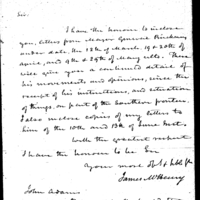 Sir.
I have the honour to inclose
you, letters from Major General Pinckney
under date the 12th of March, 19 & 20th of
April, and 9th & 29th of May ulto. These
will give you a continued detail of
his movements and opinions, since the
receipt of his instructions, and situation
of things, on part of the Southern frontier.
I also inclose copies of my letters to
him of the 10th and 13th of June Inst.
With the greatest respect
I have the honour to be Sir
Your most Obt & hble St
James McHenry
John Adams